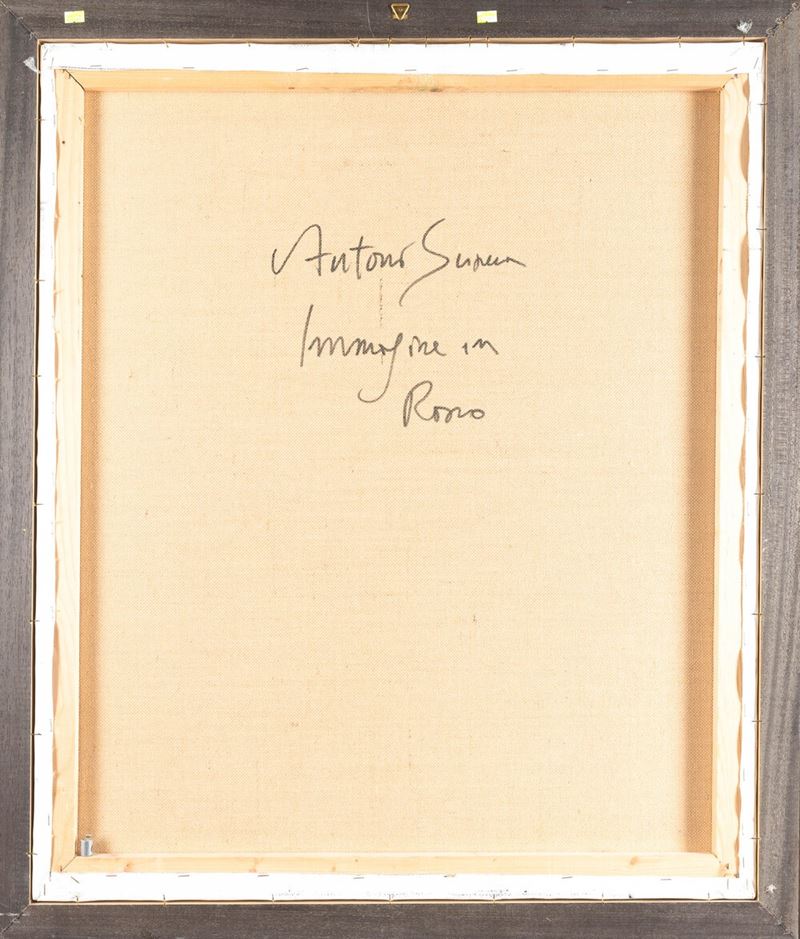 Antonio
Immagine in
Rosso